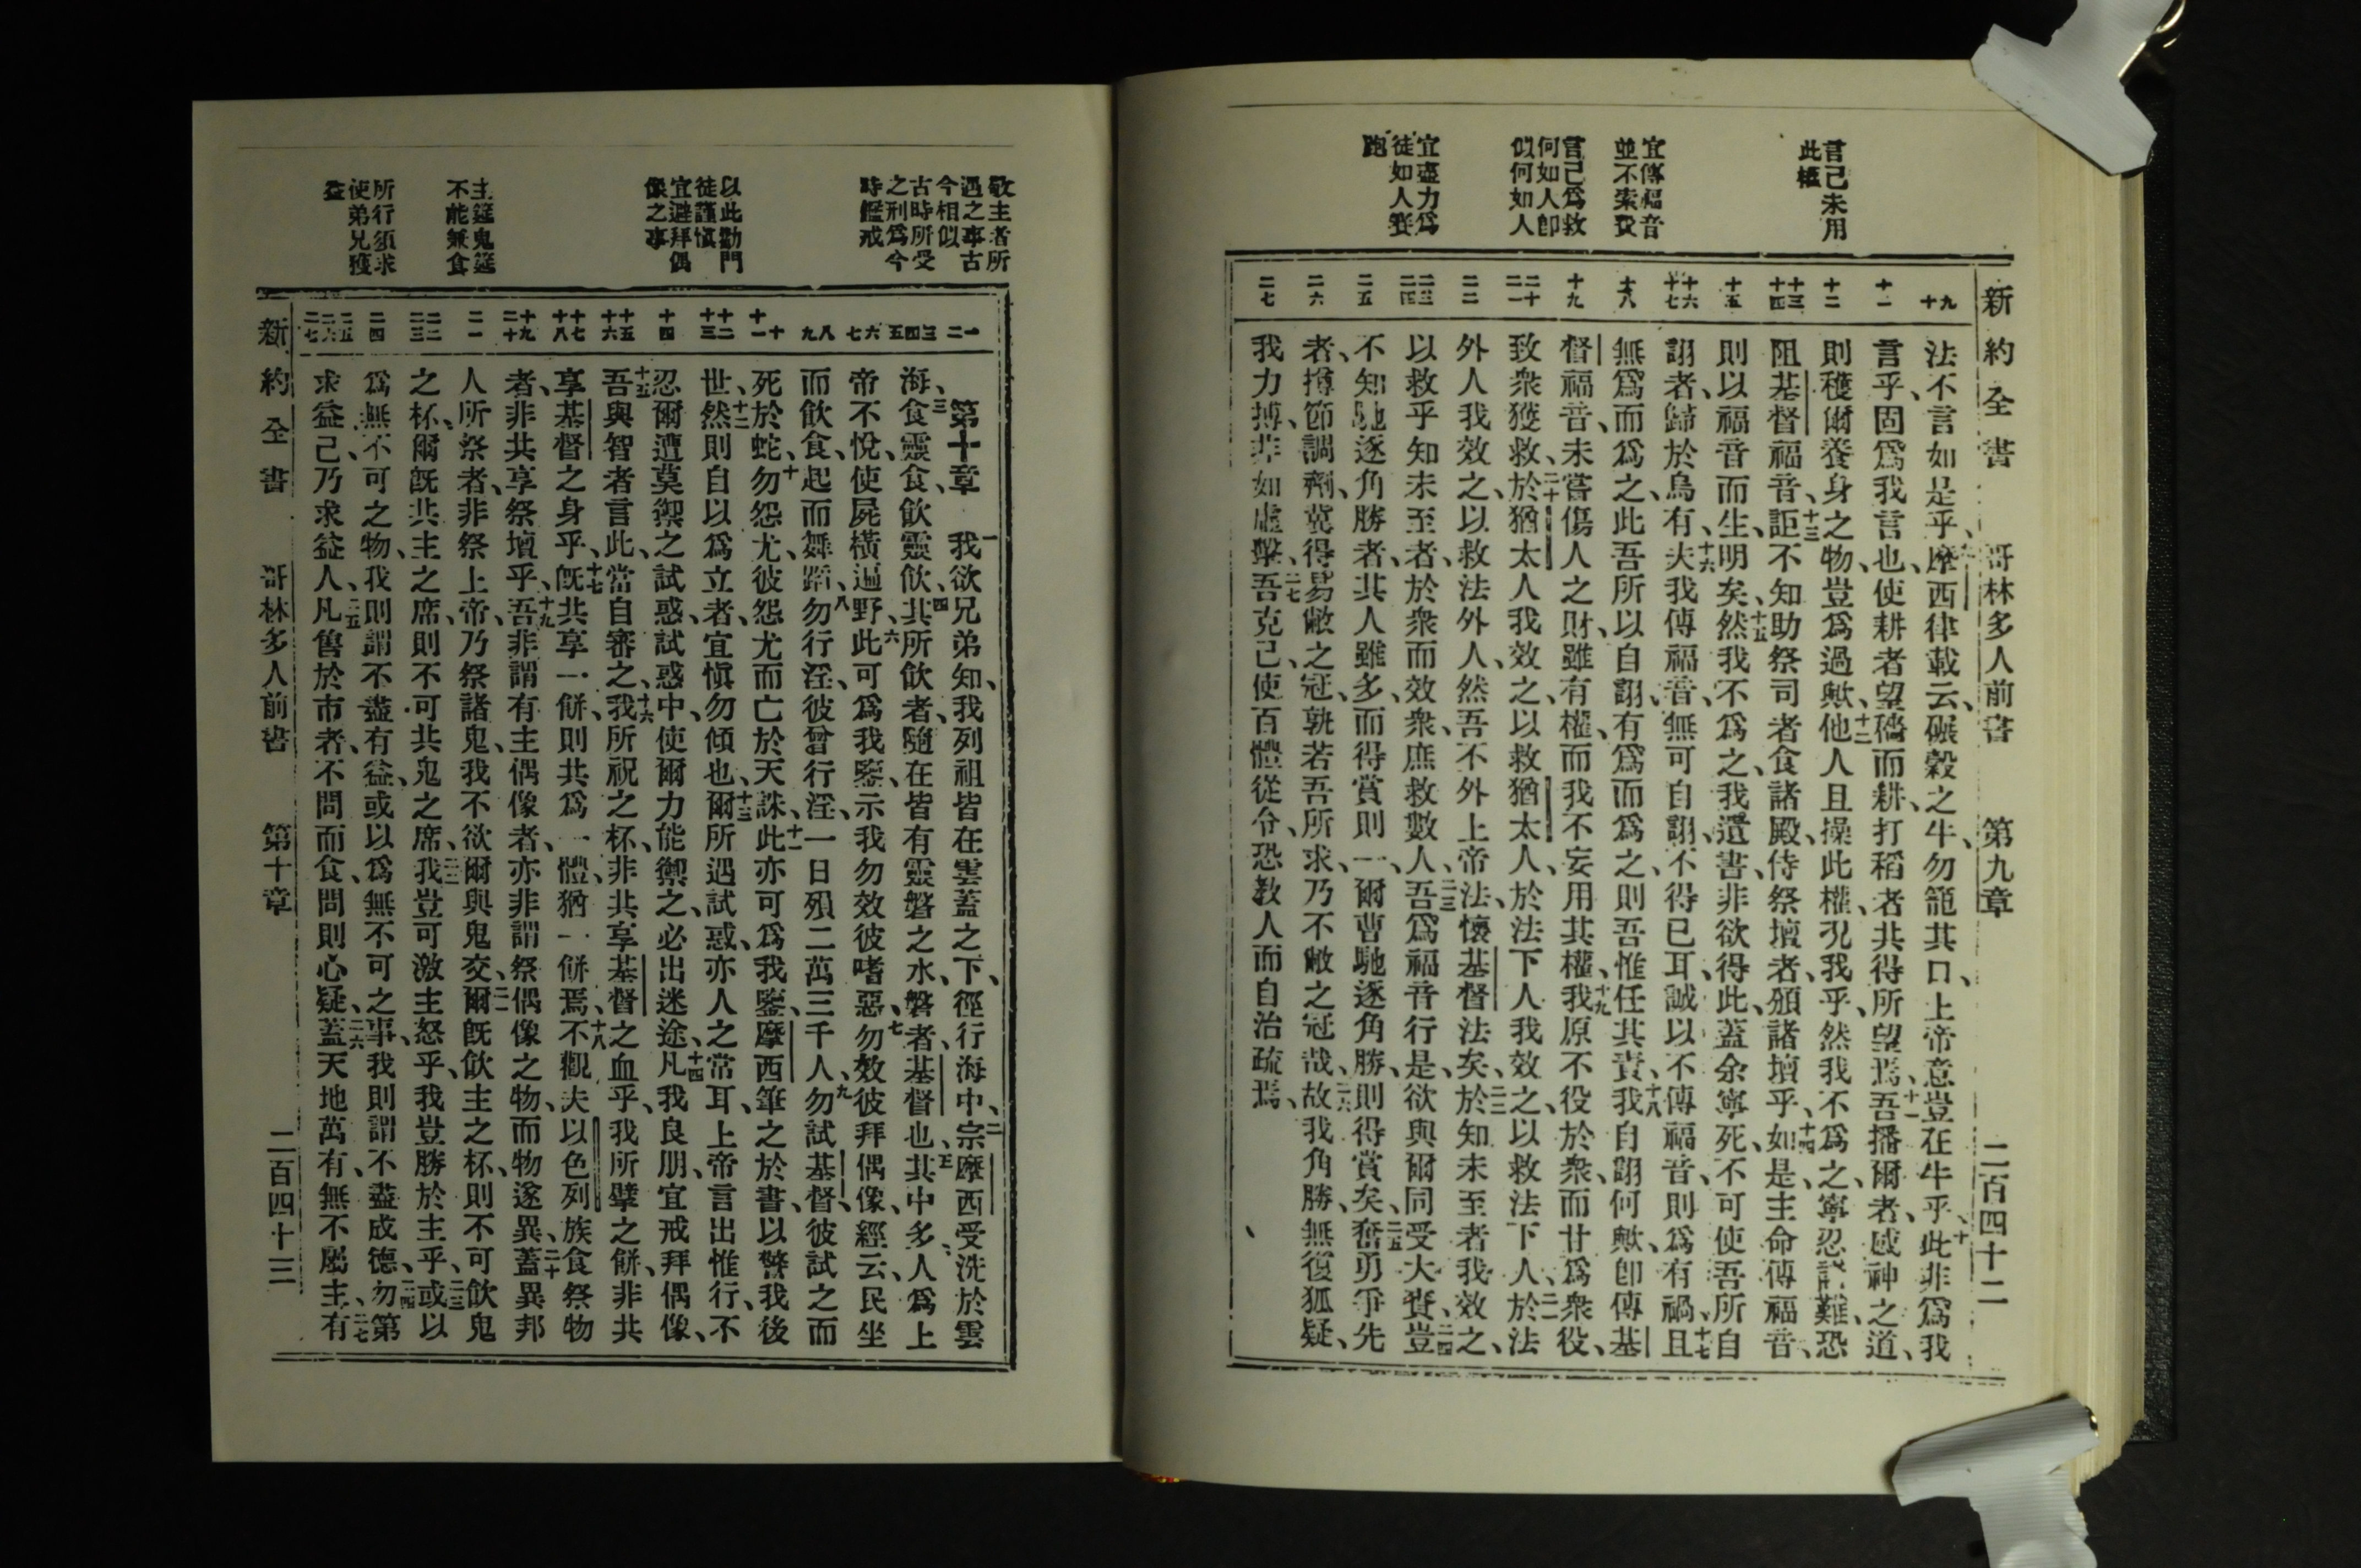 新約全書 哥林多人前書 第九章 二百四十二
言己未用
此權
宜傳福音
並不索費
言己爲救
何如人卽
似何如人
宜盡力爲
徒如人賽
跑
九 十
十一
十二
十三 十四
十五
十六 十七
十八
十九
二十 二一
二二
二三 二四
二五
二六
二七
法不言如是乎、九摩西律載云、碾穀之牛、勿籠其口、上帝意豈在牛乎、十此非爲我
言乎、固爲我言也、使耕者望穡而耕、打稻者共得所望焉、十一吾播爾者、感神之道、
則穫爾養身之物、豈爲過歟、十二他人且操此權、況我乎、然我不爲之、寧忍諸難、恐
阻基督福音、十三詎不知助祭司者、食諸殿、侍祭壇者、頒諸壇乎、十四如是、主命傳福音、
則以福音而生、明矣、十五然我不爲之、我遺書、非欲得此、蓋余寧死、不可使吾所自
詡者、歸於烏有、十六夫我傳福音、無可自詡、不得已耳、誠以不傳福音、則爲有禍、十七且
無爲而爲之、此吾所以自詡、有爲而爲之、則吾惟任其責、十八我自詡何歟、卽傳基
督福音、未嘗傷人之財、雖有權、而我不妄用其權、十九我原不役於衆、而甘爲衆役、
致衆獲救、二十於猶太人、我效之、以救猶太人、於法下人、我效之、以救法下人、二一於法
外人、我效之、以救法外人、然吾不外上帝法、懷基督法矣、二二於知未至者、我效之、
以救乎知未至者、於衆而效衆、庶救數人、二三吾爲福音行是、欲與爾同受大賚、二四豈
不知馳逐角勝者、其人雖多、而得賞則一、爾曹馳逐角勝、則得賞矣、二五奮勇爭先
者、撙節調劑、冀得易敝之冠、孰若吾所求、乃不敝之冠哉、二六故我角勝、無復狐疑、
我力搏、非如虛擊、二七吾克己、使百體從令、恐教人而自治疏焉、
敬主者所
遇之事古
今相似
古時所受
之刑爲今
時鑑戒
以此勸門
徒謹愼
宜避拜偶
像之事
主筵鬼筵
不能兼食
所行須求
使弟兄獲
益
一 二
三 四 五
六 七
八 九
十 十一
十二 十三
十四
十五 十六
十七 十八
十九 二十
二一
二二 二三
二四
二五 二六 二七
第十章 一我欲兄弟知、我列祖皆在雲蓋之下、徑行海中、二宗摩西受洗於雲
海、三食靈食、飲靈飲、四其所飲者、隨在皆有靈磐之水、磐者、基督也、五其中多人爲上
帝不悅、使屍橫遍野、六此可爲我鑒、示我勿效彼嗜惡、七勿效彼拜偶像、經云、民坐
而飲食、起而舞蹈、八勿行淫、彼曾行淫、一日殞二萬三千人、九勿試基督、彼試之而
死於蛇、十勿怨尤、彼怨尤而亡於天誅、十一此亦可爲我鑒、摩西筆之於書、以警我後
世、十二然則自以爲立者、宜愼勿傾也、十三爾所遇試惑、亦人之常耳、上帝言出惟行、不
忍爾遭莫禦之試惑、試惑中、使爾力能禦之、必出迷途、十四凡我良朋、宜戒拜偶像、
十五吾與智者言此、當自審之、十六我所祝之杯、非共享基督之血乎、我所擘之餅、非共
享基督之身乎、十七旣共享一餅、則共爲一體、猶一餅焉、十八不觀夫以色列族食祭物
者、非共享祭壇乎、十九吾非謂有主偶像者、亦非謂祭偶像之物、而物遂異、二十蓋異邦
人所祭者、非祭上帝、乃祭諸鬼、我不欲爾與鬼交、二一爾旣飲主之杯、則不可飲鬼
之杯、爾旣共主之席、則不可共鬼之席、二二我豈可激主怒乎、我豈勝於主乎、二三或以
爲無不可之物、我則謂不盡有益、或以爲無不可之事、我則謂不盡成德、二四勿第
求益己、乃求益人、二五凡售於市者、不問而食、問則心疑、二六蓋天地萬有、無不屬主、二七有
新約全書 哥林多人前書 第十章 二百四十三